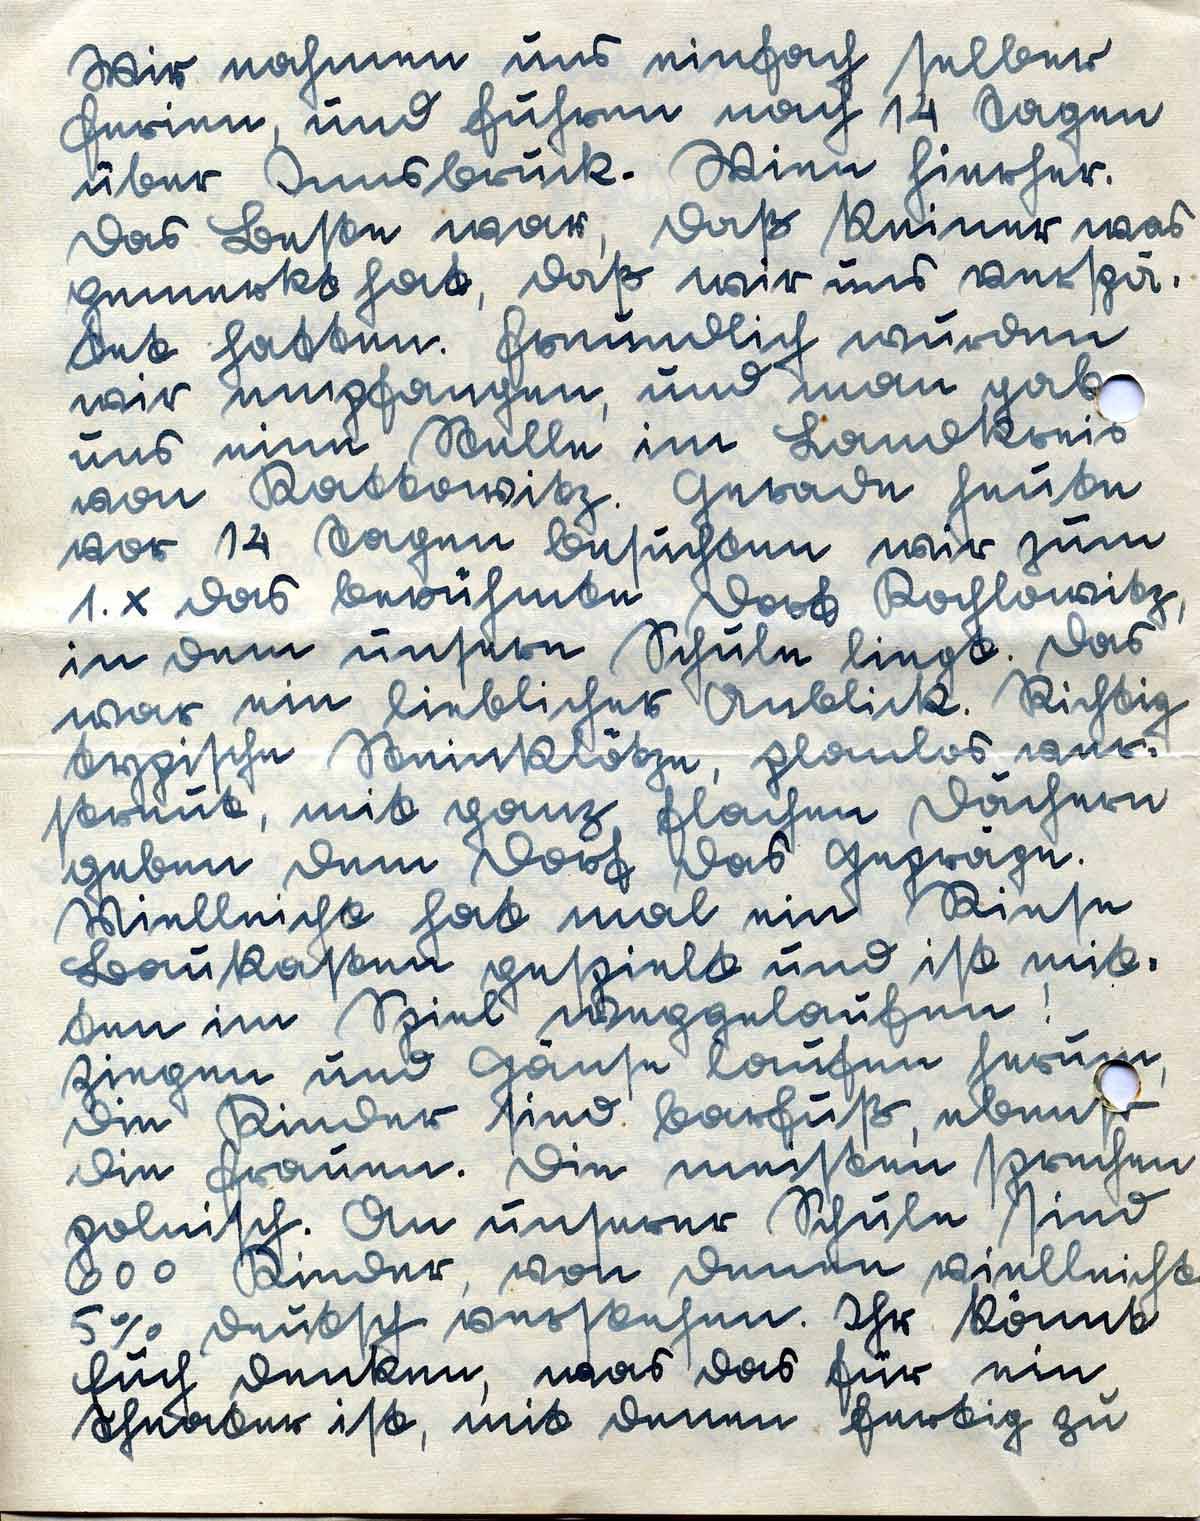 Wir nahmen uns einfach selber
Ferien, und fuhren nach 14 Tagen
über Innsbruck - Wien hierher.
Das Beste war, daß keiner was
gemerkt hat, daß wir uns verspä-
tet hatten. Freundlich wurden
wir empfangen, und man gab
uns eine Stelle im Landkreis
von Kattowitz. Gerade heute
vor 14 Tagen besuchten wir zum
1. x das berühmte Dorf Kochlowitz,
in dem unsere Schule liegt. Das
war ein lieblicher Anblick. Richtig
typische Steinklötze, planlos ver-
streut, mit ganz flachen Dächern
geben dem Dorf das Gepräge.
Vielleicht hat mal ein Riese
Baukasten gespielt und ist mit-
ten im Spiel weggelaufen!
Ziegen und Gänse laufen herum,
die Kinder sind barfuß, ebenso
die Frauen. Die meisten sprechen
polnisch. An unserer Schule sind
600 Kinder, von denen vielleicht
5% deutsch verstehen. Ihr könnt
Euch denken, was das für ein
Theater ist, mit denen fertig zu